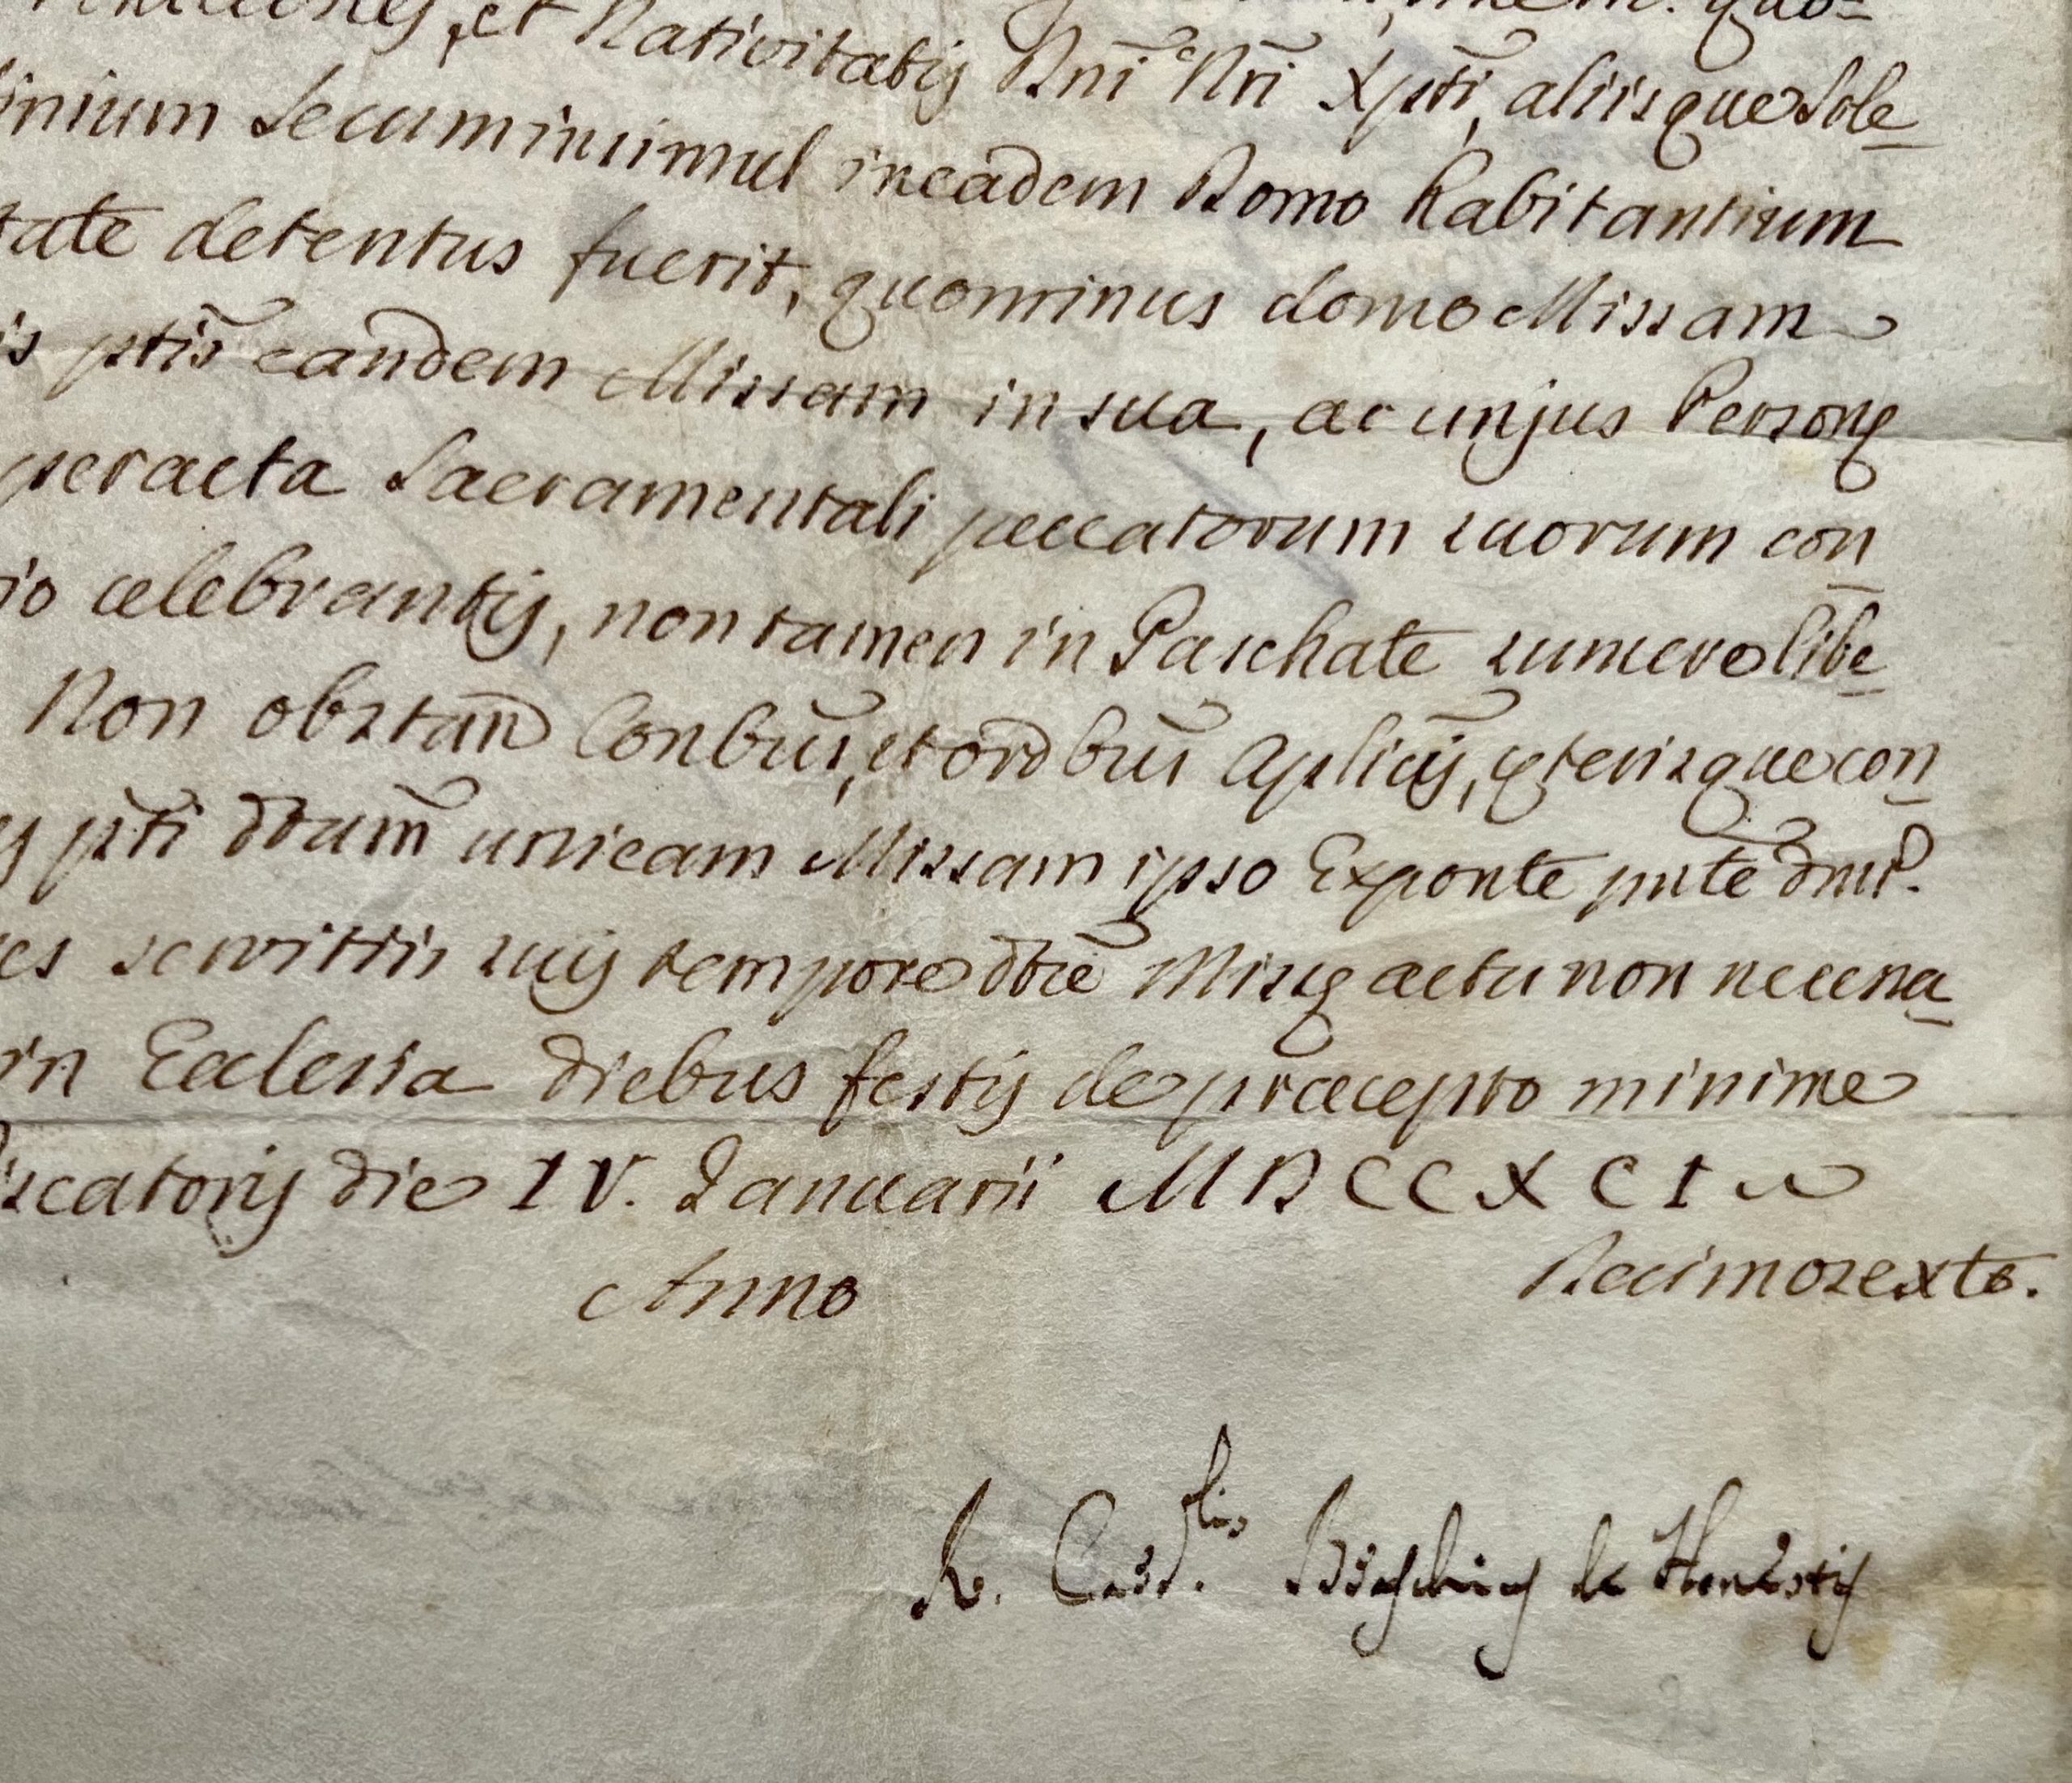 et Nativitatis Dnī Nrī Xpti, aliisque Sole
Secum inimul in eadem Domo habitantium
tate detentus fuerit, quominus domo Missam
is ptis eandem Missam in sua, ac unjus Personę
peracta Sacramentali peccatorum suorum con
io celebrantis, non tamen in Paschate sumere libe
Non obstan Conbus, et ordbus Aplicis, cęterisque con
pti dtam unicam Missam ipso Exponte pnte dmt.
es servitiis suis tempore dtæ Missę actu non necessa
in Ecclesia diebus festis de præcepto minime
iscatoris die IV. Januarii MDCCXCI
Anno Decimosexto.
R. Card.lis Braschius de Honestis